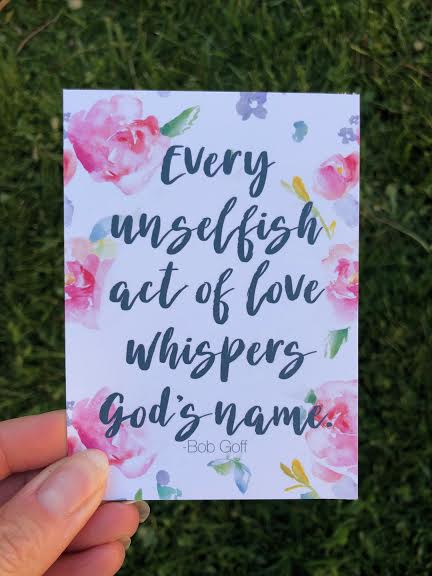 Every
unselfish
act of love
whispers
God's name.
-Bob Goff